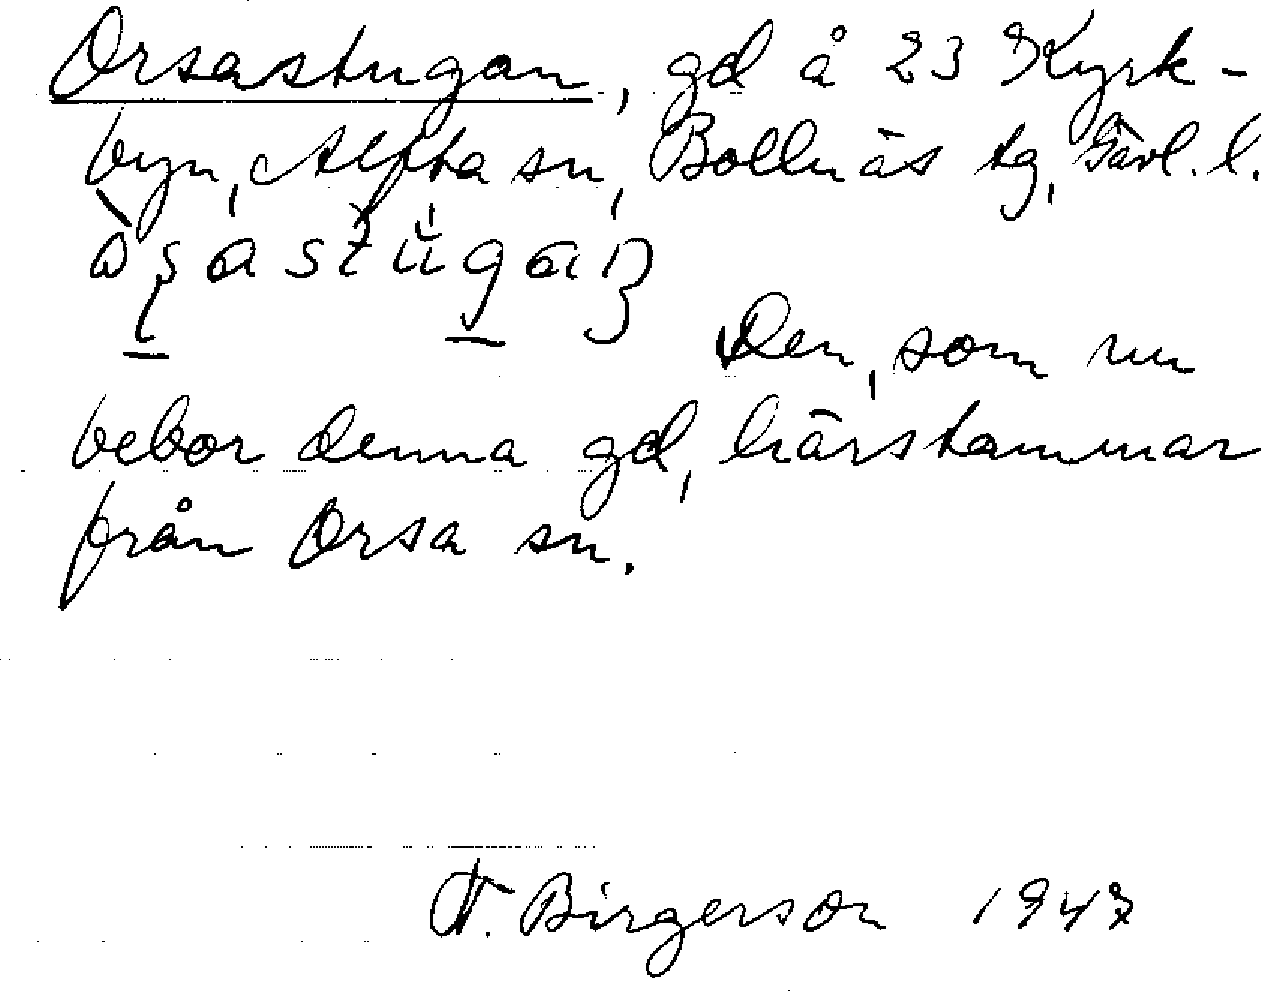 Orsastugan, gd å 23 Kyrk-
byn, Alfta sn, Bollnäs tg, Gävl. l.
Den, som nu
bebor denna gd, härstammar
från Orsa sn.
N. Birgerson 1947